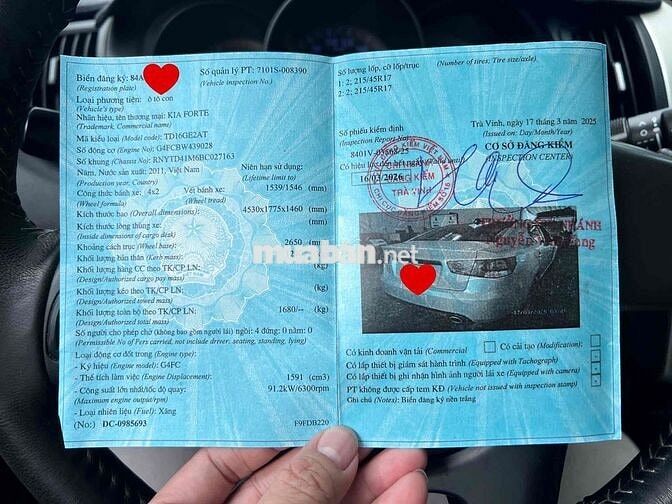 Biển đăng ký: 84A
(Registration plate)
Số quản lý PT: 7101S-008390
(Vehicle inspection No.)
Loại phương tiện: ô tô con
(Vehicle's type)
Nhãn hiệu, tên thương mại: KIA FORTE
(Trademark, Commercial name)
Mã kiểu loại (Model code): TD16GE2AT
Số động cơ (Engine No): G4FCBW439028
Số khung (Chassis No): RNYTD41M6BC027163
Năm, Nước sản xuất: 2011, Việt Nam
(Production year, Country)
Niên hạn sử dụng:
(Lifetime limit to)
Công thức bánh xe: 4x2
(Wheel formula)
Vết bánh xe: 1539/1546 (mm)
(Wheel tread)
Kích thước bao (Overall dimensions): 4530x1775x1460 (mm)
Kích thước lòng thùng xe: (mm)
(Inside dimensions of cargo deck)
Khoảng cách trục (Wheel base): 2650 (mm)
Khối lượng bản thân (Kerb mass): (kg)
Khối lượng hàng CC theo TK/CP LN: (kg)
(Design/Authorized cargo pay mass)
Khối lượng kéo theo TK/CP LN: (kg)
(Design/Authorized towed mass)
Khối lượng toàn bộ theo TK/CP LN: 1680/-- (kg)
(Design/Authorized total mass)
Số người cho phép chở (không bao gồm người lái) ngồi: 4 đứng: 0 nằm: 0
(Permissible No of Pers carried, not include driver, seating, standing, lying)
Loại động cơ đốt trong (Engine type):
- Ký hiệu (Engine model): G4FC
- Thể tích làm việc (Engine Displacement): 1591 (cm3)
- Công suất lớn nhất/tốc độ quay: 91.2kW/6300rpm
(Maximum engine output/rpm)
- Loại nhiên liệu (Fuel): Xăng
(No:) DC-0985693
F9FDB220
Số lượng lốp, cỡ lốp/trục
(Number of tires; Tire size/axle)
1: 2; 215/45R17
2: 2; 215/45R17
Số phiếu kiểm định
(Inspection Report No)
8401V-03608/25
Có hiệu lực đến hết ngày (Valid until)
16/03/2026
Trà Vinh, ngày 17 tháng 3 năm 2025
(Issued on: Day/Month/Year)
CƠ SỞ ĐĂNG KIỂM
(INSPECTION CENTER)
ĐĂNG KIỂM
TRÀ VINH
muaban.net
Có kinh doanh vận tải (Commercial
Có cải tạo (Modification):
Có lắp thiết bị giám sát hành trình (Equipped with Tachograph)
Có lắp thiết bị ghi nhận hình ảnh người lái xe (Equipped with camera)
PT không được cấp tem KĐ (Vehicle not issued with inspection stamp)
Ghi chú (Notes): Biển đăng ký nền trắng